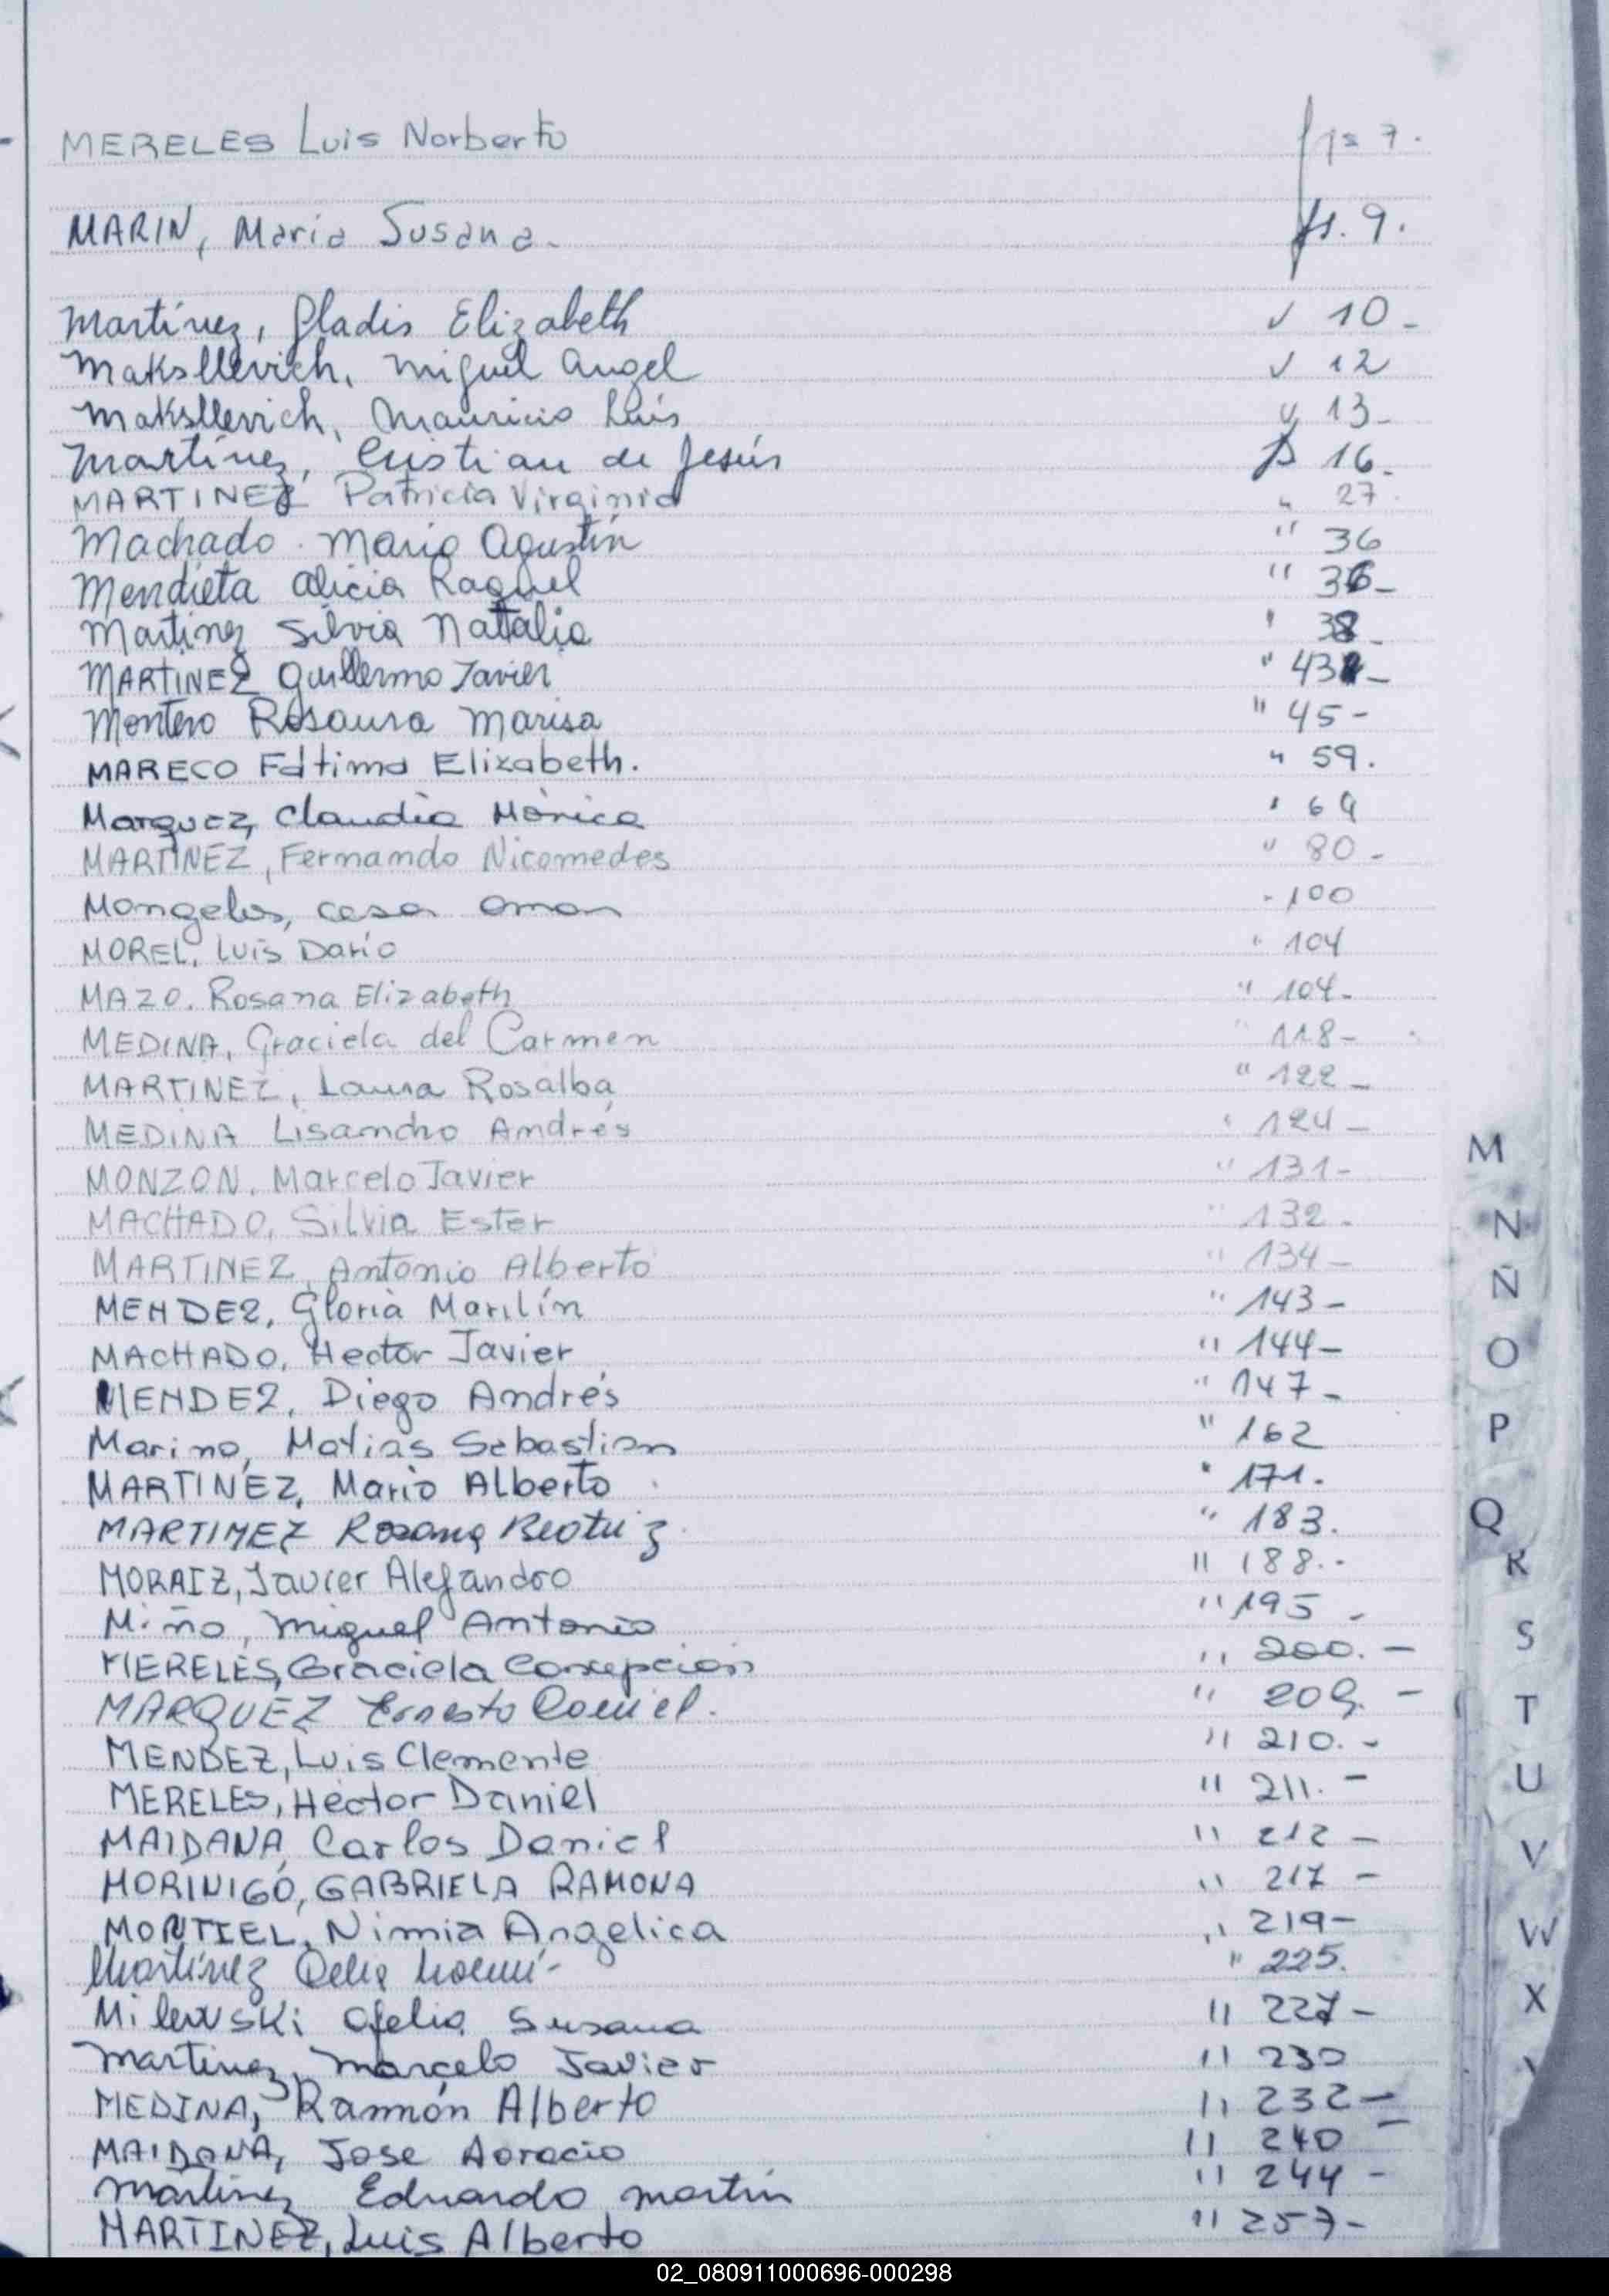 MERELES Luis Norberto fs 7.
MARIN, Maria Susana. fs. 9.
Martínez, Gladis Elizabeth " 10-
Maksllevich, Miguel Angel " 12
Maksllevich, Mauricio Luis " 13-
Martínez, Cristian de Jesús 16-
MARTINEZ Patricia Virginia " 27.
Machado. Mario Agustín " 36
Mendieta Alicia Raquel " 36-
Martinez Silvia Natalia " 38-
MARTINEZ Guillermo Javier " 43-
Montero Rosaura Marisa " 45-
MARECO Fátima Elizabeth. " 59.
Marquez, Claudia Mónica " 64
MARTINEZ, Fernando Nicomedes " 80-
Mongelos, Cesar Omar - 100
MOREL, Luis Darío " 104
MAZO. Rosana Elizabeth " 104-
MEDINA, Graciela del Carmen " 118-
MARTINEZ, Laura Rosalba " 122-
MEDINA Lisandro Andrés " 124-
MONZON, Marcelo Javier " 131-
MACHADO, Silvia Ester " 132-
MARTINEZ, Antonio Alberto " 134-
MENDEZ, Gloria Marilín " 143-
MACHADO, Hector Javier " 144-
MENDEZ, Diego Andrés " 147-
Marino, Matias Sebastian " 162
MARTINEZ, Mario Alberto " 171.
MARTINEZ Rosana Beatriz " 183.
MORAIZ, Javier Alejandro " 188.-
Miño, Miguel Antonio " 195-
MERELES, Graciela Concepción " 200.-
MARQUEZ Ernesto Daniel. " 209.-
MENDEZ, Luis Clemente " 210.-
MERELES, Héctor Daniel " 211.-
MAIDANA, Carlos Daniel " 212-
MORINIGO, GABRIELA RAMONA " 217-
MONTIEL, Nimia Angelica " 219-
Martínez Delia Noemí- " 225.
Milewski Ofelia Susana " 227-
Martinez, Marcelo Javier " 230
MEDINA, Ramón Alberto " 232-
MAIDANA, Jose Horacio " 240-
Martinez Eduardo Martín " 244-
MARTINEZ, Luis Alberto " 257-
M
N
Ñ
O
P
Q
R
S
T
U
V
W
X
02_080911000696-000298